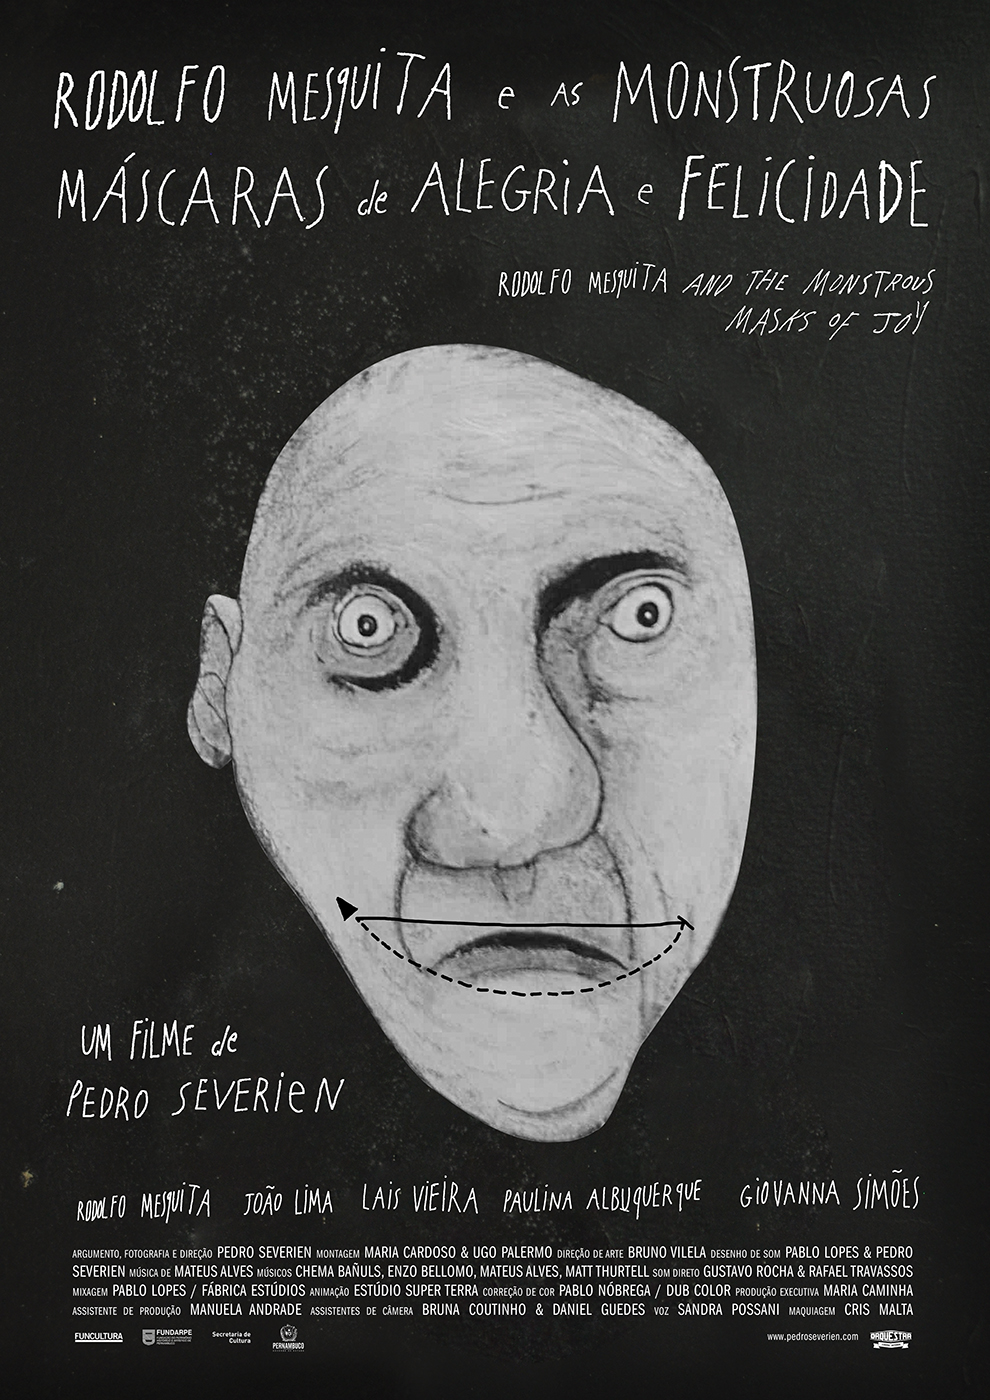 RODOLFO MESQUITA e AS MONSTRUOSAS
MÁSCARAS de ALEGRIA e FELICIDADE
RODOLFO MESQUITA AND THE MONSTROUS
MASKS OF JOY
UM FILME de
PEDRO SEVERIEN
RODOLFO MESQUITA JOÃO LIMA LAIS VIEIRA PAULINA ALBUQUERQUE GIOVANNA SIMÕES
ARGUMENTO, FOTOGRAFIA E DIREÇÃO PEDRO SEVERIEN MONTAGEM MARIA CARDOSO & UGO PALERMO DIREÇÃO DE ARTE BRUNO VILELA DESENHO DE SOM PABLO LOPES & PEDRO
SEVERIEN MÚSICA DE MATEUS ALVES MÚSICOS CHEMA BAÑULS, ENZO BELLOMO, MATEUS ALVES, MATT THURTELL SOM DIRETO GUSTAVO ROCHA & RAFAEL TRAVASSOS
MIXAGEM PABLO LOPES / FÁBRICA ESTÚDIOS ANIMAÇÃO ESTÚDIO SUPER TERRA CORREÇÃO DE COR PABLO NÓBREGA / DUB COLOR PRODUÇÃO EXECUTIVA MARIA CAMINHA
ASSISTENTE DE PRODUÇÃO MANUELA ANDRADE ASSISTENTES DE CÂMERA BRUNA COUTINHO & DANIEL GUEDES VOZ SANDRA POSSANI MAQUIAGEM CRIS MALTA
FUNCULTURA FUNDARPE Secretaria de Cultura PERNAMBUCO www.pedroseverien.com ORQUESTRA